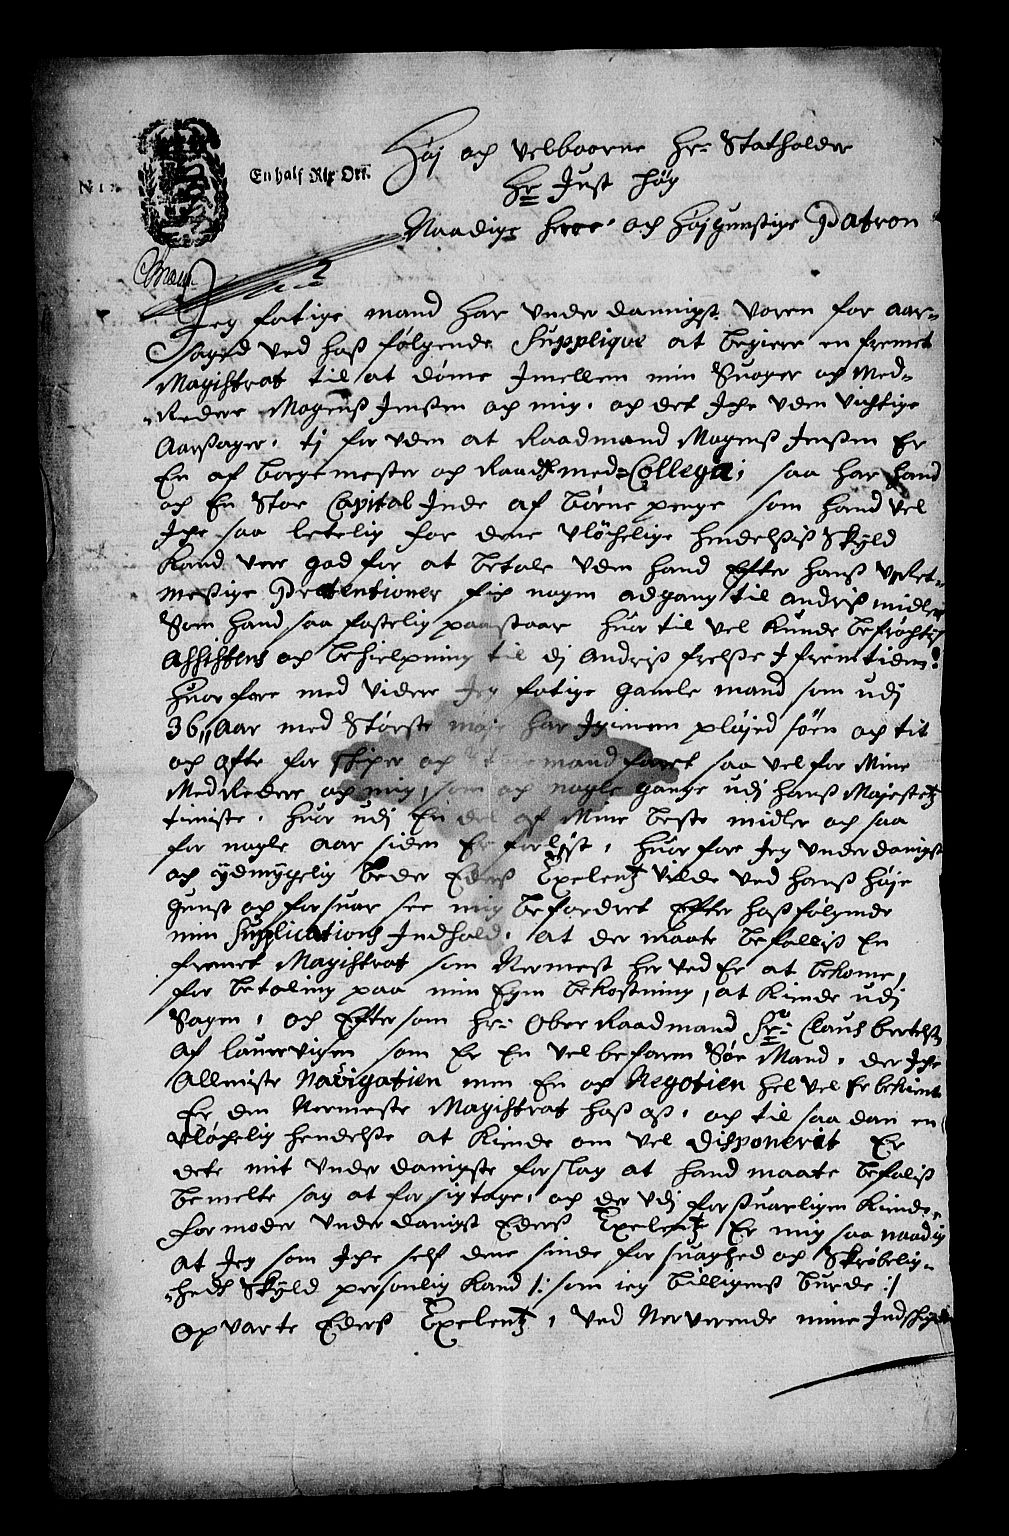 Høj och Velbaarne Hr: Statholder
N 1
En half Rix Ort.
Hr Just Høg
Naadige Herre och Højgunstige Patron
Jeg fatige mand har Underdanigst voren for aar-
saged ved hosfølgende Supplique at begiere en fremet
Magistrat til at døme Imellem min Suoger och Med-
Redere Mogens Jensen och mig, och det Iche uden vichtige
Aarsager, tj foruden at Raadmand Mogens Jensen Er
En af borgemester och Raads med-Collega, saa har hand
och En Stor Capital Inde af børne penge som hand vel
Iche saa letelig for dene Uløchelige hendelsis Skyld
Kand vere god for at betale uden hand Efter hans Upret-
mesige Prætentioner fich nogen adgang til andris midler
Som hand saa fastelig paastaar huor til vel kunde befrøchtis
Assistens och behielpning til dj Andris frelse I fremtiden.
Huorfore med videre Jeg fatige gamle mand som udj
36 Aar med Største møje har Igienem pløjed søen och tit
och ofte for skiper och Styremand faret saa vel for Mine
MedRedere och mig, som och nogle gange udj hans Majestetz
tieniste, huor udj En del af Mine beste midler och saa
for nogle aar siden Er forlist, huorfore Jeg underdanigst
och ydmygelig beder Eders Exelentz vilde ved hans høje
gunst och forsuar see mig befordret Efter hosfølgende
min Supplications Indhold, at der maate befallis En
fremet Magistrat som Nermest her ved Er at bekome,
for betaling paa min Egen bekostning, at Kiende udj
Sagen, och Eftersom Hr: Ober Raadmand Sr: Claus bertelsen
af lauervigen som Er En velbefaren Søe Mand, der Iche
Alleniste Navigatien men En och Negotien hel vel Er bekient
Er den Nermeste Magistrat hos os, och til saadan en
Uløchelig hendelse at Kiende om vel disponerit Er
dete mit underdanigste forslag at hand maate befalis
bemelte sag at forsigtage, och der udj forsuarligen Kiende,
formoder underdanigst Eders Exelentz Er mig saa naadig
at Jeg som Iche self dene sinde for suaghed och Skrøbelig-
heds Skyld personlig Kand /: som ieg billigens burde :/
Opvarte Eders Exelentz, ved Nerverende mine Indskichede